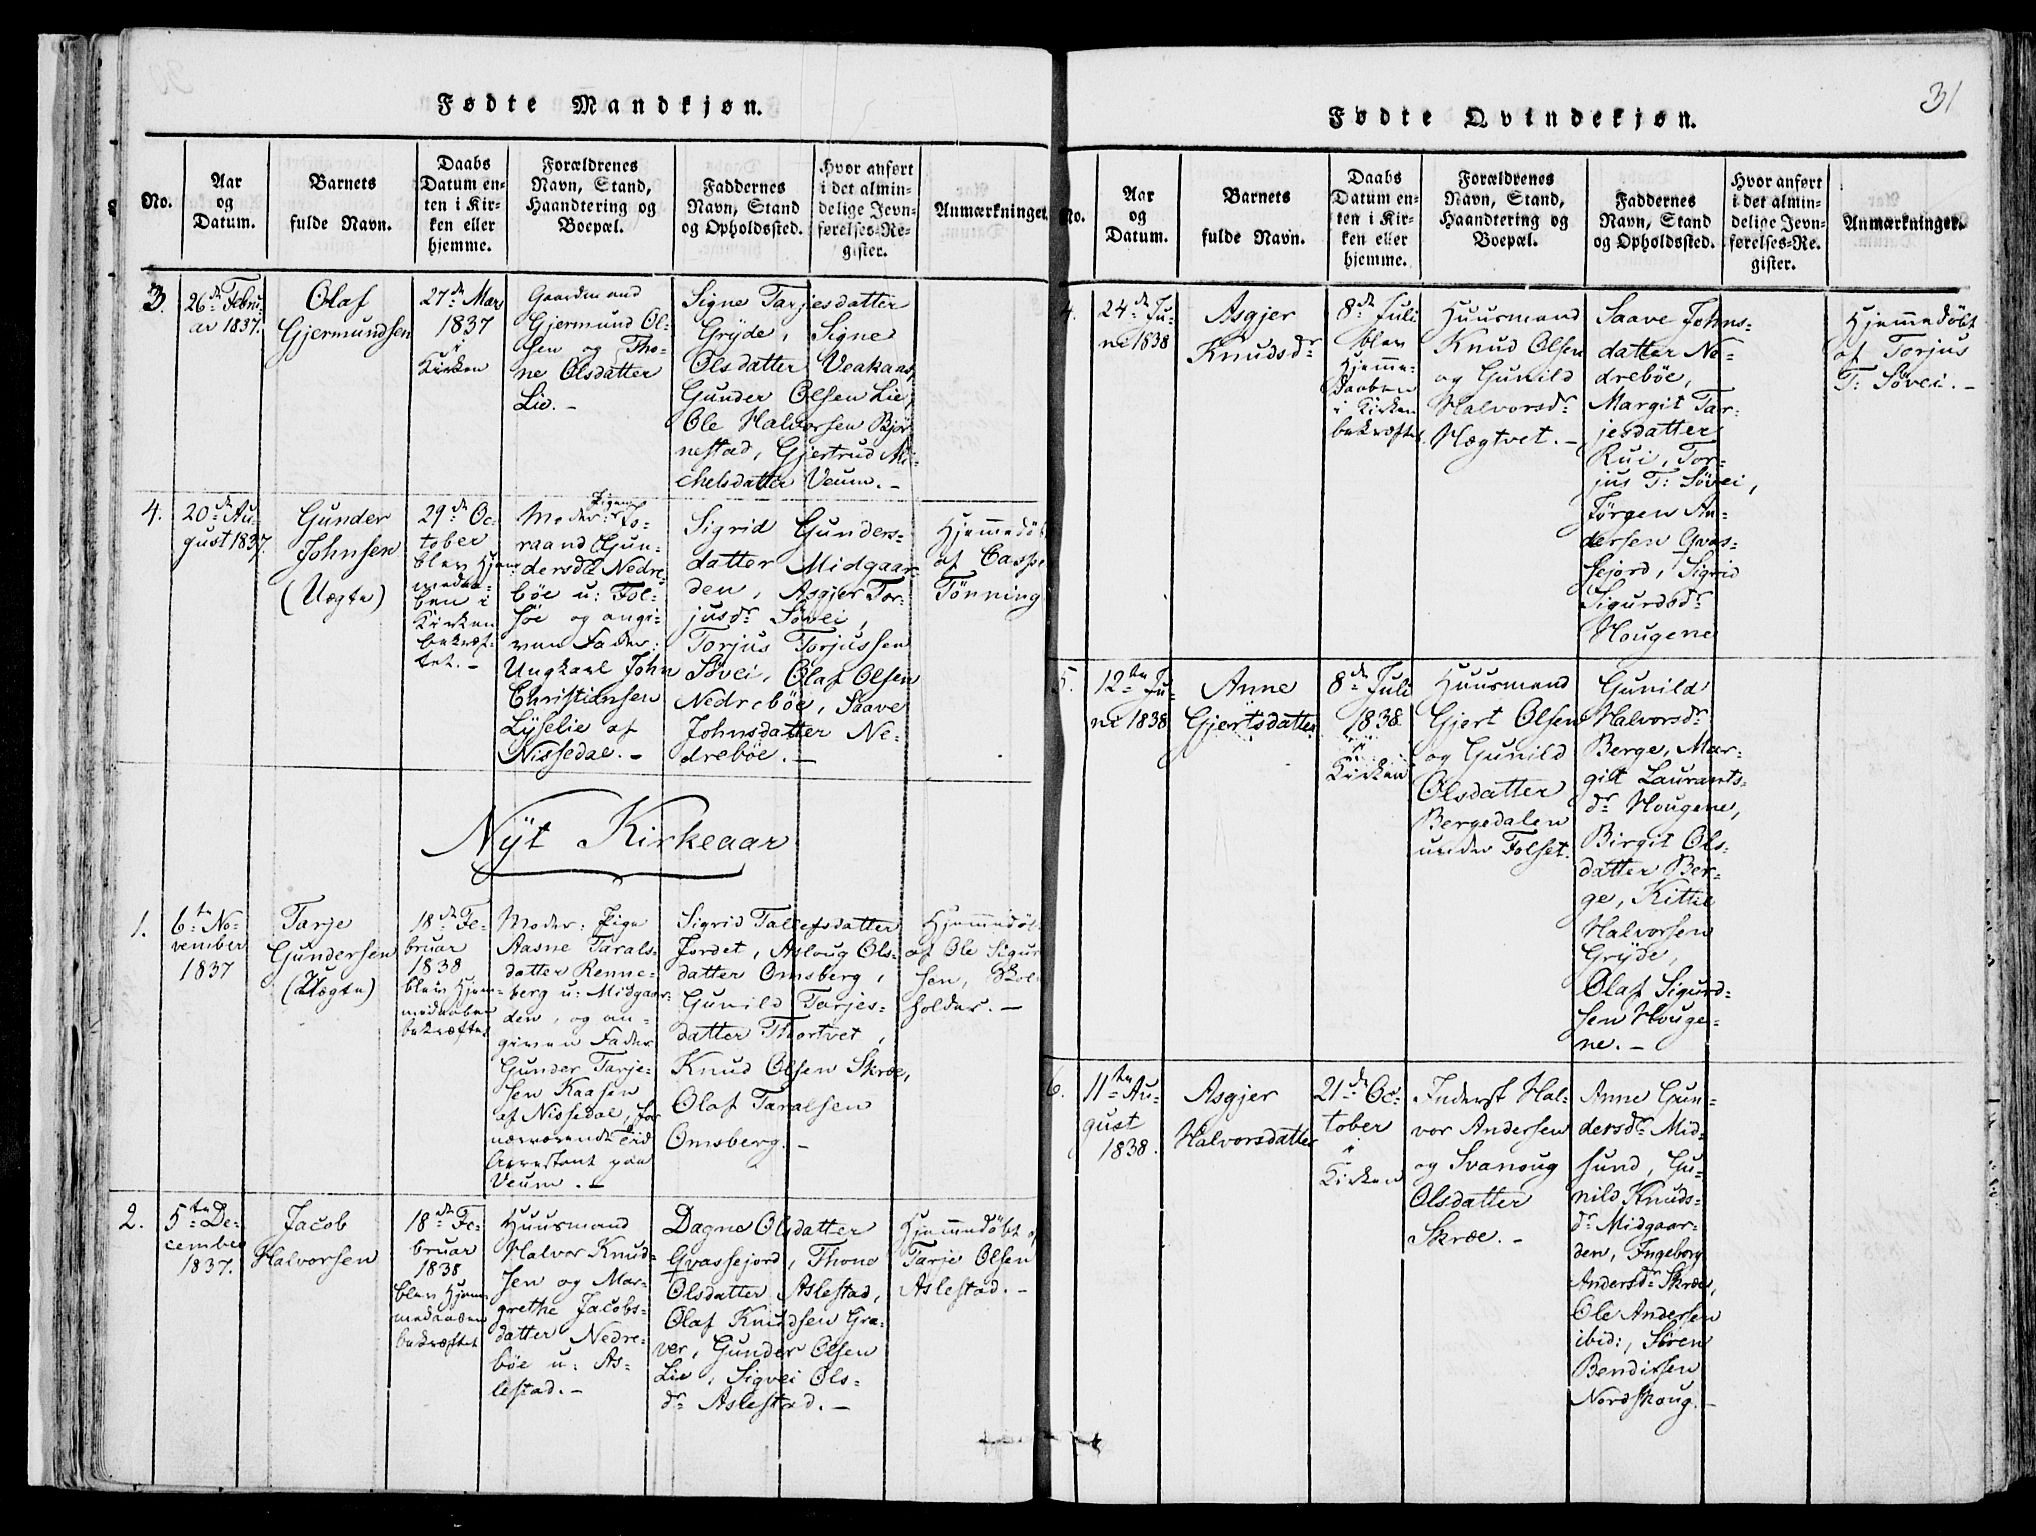 Fødte Mandkjøn.
No.
Aar
og
Datum.
Barnets
fulde Navn.
Daabs
Datum en-
ten i Kir-
ken eller
hjemme.
Forældrenes
Navn, Stand,
Haandtering og
Boepæl.
Faddernes
Navn, Stand
og Opholdssted.
Hvor anført
i det almin-
delige Jevn-
førelses-Re-
gister.
Anmærkninger.
3.
26de Febru-
ar 1837.
Olaf
Gjermundsen
27de Mars
1837
i
Kirken
Gaardmand
Gjermund Ol-
sen og Tho-
ne Olsdatter
Lie. -
Signe Tarjesdatter
Grÿde, Signe
Olsdatter Veakaas,
Gunder Olsen Lie,
Ole Halvorsen Bjør-
nestad, Gjertrud Mi-
chelsdatter Veum. -
4.
20de Au-
gust 1837.
Gunder
Johnsen
(Uægte)
29de Oc-
tober
blev Hjem-
medaa-
ben i
Kirken
bekræf-
tet. -
Moder: Pigen
raand Gun-
dersd. Nedre-
bøe u: Fol-
søe og angi-
ven Fader:
Ungkarl John
Christiansen
Lÿselie af
Nissedal. -
Sigrid Gunders-
datter Midgaar-
den, Asgjer Tor-
jusdr Søvei,
Torjus Torjussen
Søvei, Olaf Olsen
Nedrebøe, Saave
Johnsdatter Ne-
drebøe. -
Hjemmedøbt
af
Tønning
Nÿt Kirkeaar
1.
6te No-
vember
1837
Tarje
Gundersen
(Uægte)
18de Fe-
bruar
1838
blev Hjem-
medaaben
bekræftet
Moder: Pige
Aasne Tarals-
datter Renne-
berg u: Midgaar-
den, og an-
given Fader
Gunder Tarje-
sen Kaasen
af Nissedal, for
nærværende Tid
Arrestant paa
Veum. -
Sigrid Tallefsdatter
Jordet, Asloug Ols-
datter Omsberg,
Gunild Tarjes-
datter Thortvet,
Knud Olsen Skræe,
Olaf Taralsen
Omsberg. -
Hjemmedøbt
af Ole Sigur-
sen, Skole-
holder. -
2.
5te De-
cember
1837.
Jacob
Halvorsen
18de Fe-
bruar
1838
blev Hjem-
medaaben
bekræftet
Huusmand
Halvor Knud-
sen og Mar-
grethe Jacobs-
datter Nedre-
bøe u: As-
lestad. -
Dagne Olsdatter
Qvassejord, Thone
Olsdatter Aslestad,
Olaf Knudsen Gra-
ver, Gunder Olsen
Lie, Sigvei Ols-
dr Aslestad. -
Hjemmedøbt af
Tarje Olsen
Aslestad. -
31
Fødte Qvindekjøn.
No.
Aar
og
Datum.
Barnets
fulde Navn.
Daabs
Datum en-
ten i Kir-
ken eller
hjemme.
Forældrenes
Navn, Stand,
Haandtering og
Boepæl.
Faddernes
Navn, Stand
og Opholdssted.
Hvor anført
i det almin-
delige Jevn-
førelses-Re-
gister.
Anmærkninger.
4.
24de Ju-
ni 1838
Asgjer
Knudsdr
8de Juli
blev
Hjemme-
daaben
i Kirken
bekræftet.
Huusmand
Knud Olsen
og Gunild
Halvorsdr
Hægtvet. -
Saave Johns-
datter Ne-
drebøe,
Margit Tar-
jesdatter
Rui, Tor-
jus T: Søvei,
Jørgen An-
dersen Qvas-
sejord, Sigrid
Sigurdsdr
Hougene
Hjemmedøbt
af Torjus
T: Søvei. -
5.
12te Ju-
ni 1838
Anne
Gjertsdatter
8de Juli
1838
i
Kirken
Huusmand
Gjert Olsen
og Gunild
Olsdatter
Bergedalen
under Folset.
Gunild
Halvorsdr
Berge, Mar-
git Laurants-
dr Hougene,
Birgit Ols-
datter Ber-
ge, Kittil
Halvorsen
Grÿde,
Olaf Sigurd-
sen Houge-
ne. -
6.
11te Au-
gust
1838.
Asgjer
Halvorsdatter
21de Oc-
tober
i
Kirken
Inderst Hal-
vor Andersen
og Svanoug
Olsdatter
Skræe. -
Anne Gun-
dersdr Mid-
sund, Gu-
nild Knuds-
dr Midgaar-
den, Ingeborg
Andersdr Skræe,
Ole Andersen
ibid:, Søren
Bendixsen
Nordskoug. -